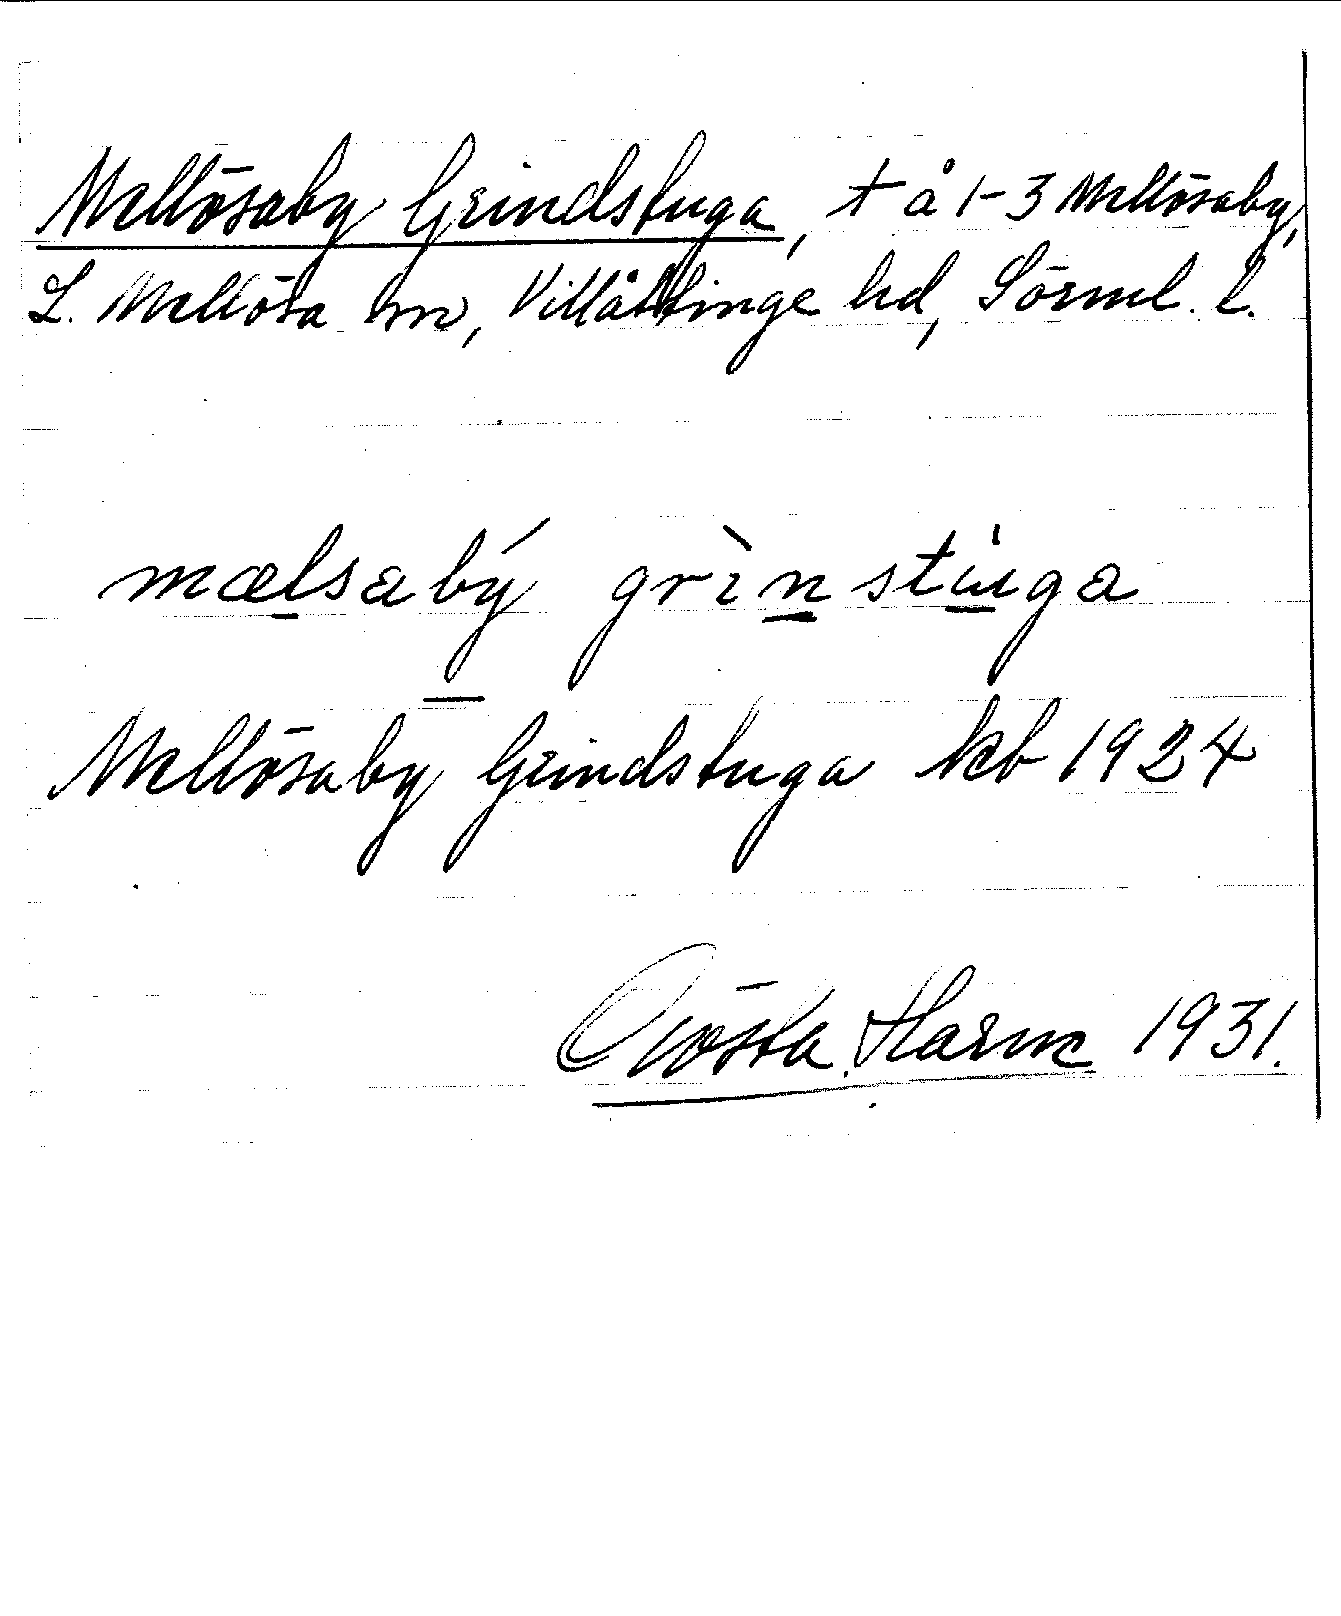 Mellösaby Grindstuga, t å 1-3 Mellösaby,
L. Mellösa sn, Villåttinge hd, Sörml. l.
mælsabý grìnstu̇ga
Mellösaby Grindstuga kb 1924
Gösta Harne 1931.